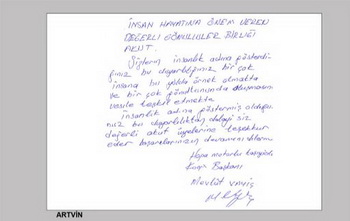 İNSAN HAYATINA ÖNEM VEREN
DEĞERLİ GÖNÜLLÜLER BİRLİĞİ
AKUT.
Sizlerin insanlık adına gösterdi
ğiniz bu duyarlılığınız bir çok
insana bu yolda örnek olmakta
ve bir çok gönüllünün da oluşmasını
vesile teşkil etmekte
insanlık adına göstermiş olduğu
nuz bu duyarlılıktan dolayı siz
değerli akut üyelerine teşekkür
eder başarılarınızın devamını dilerim
Hopa motorlu taşıyıcılar
Koop Başkanı
Mevlüt
ARTVİN